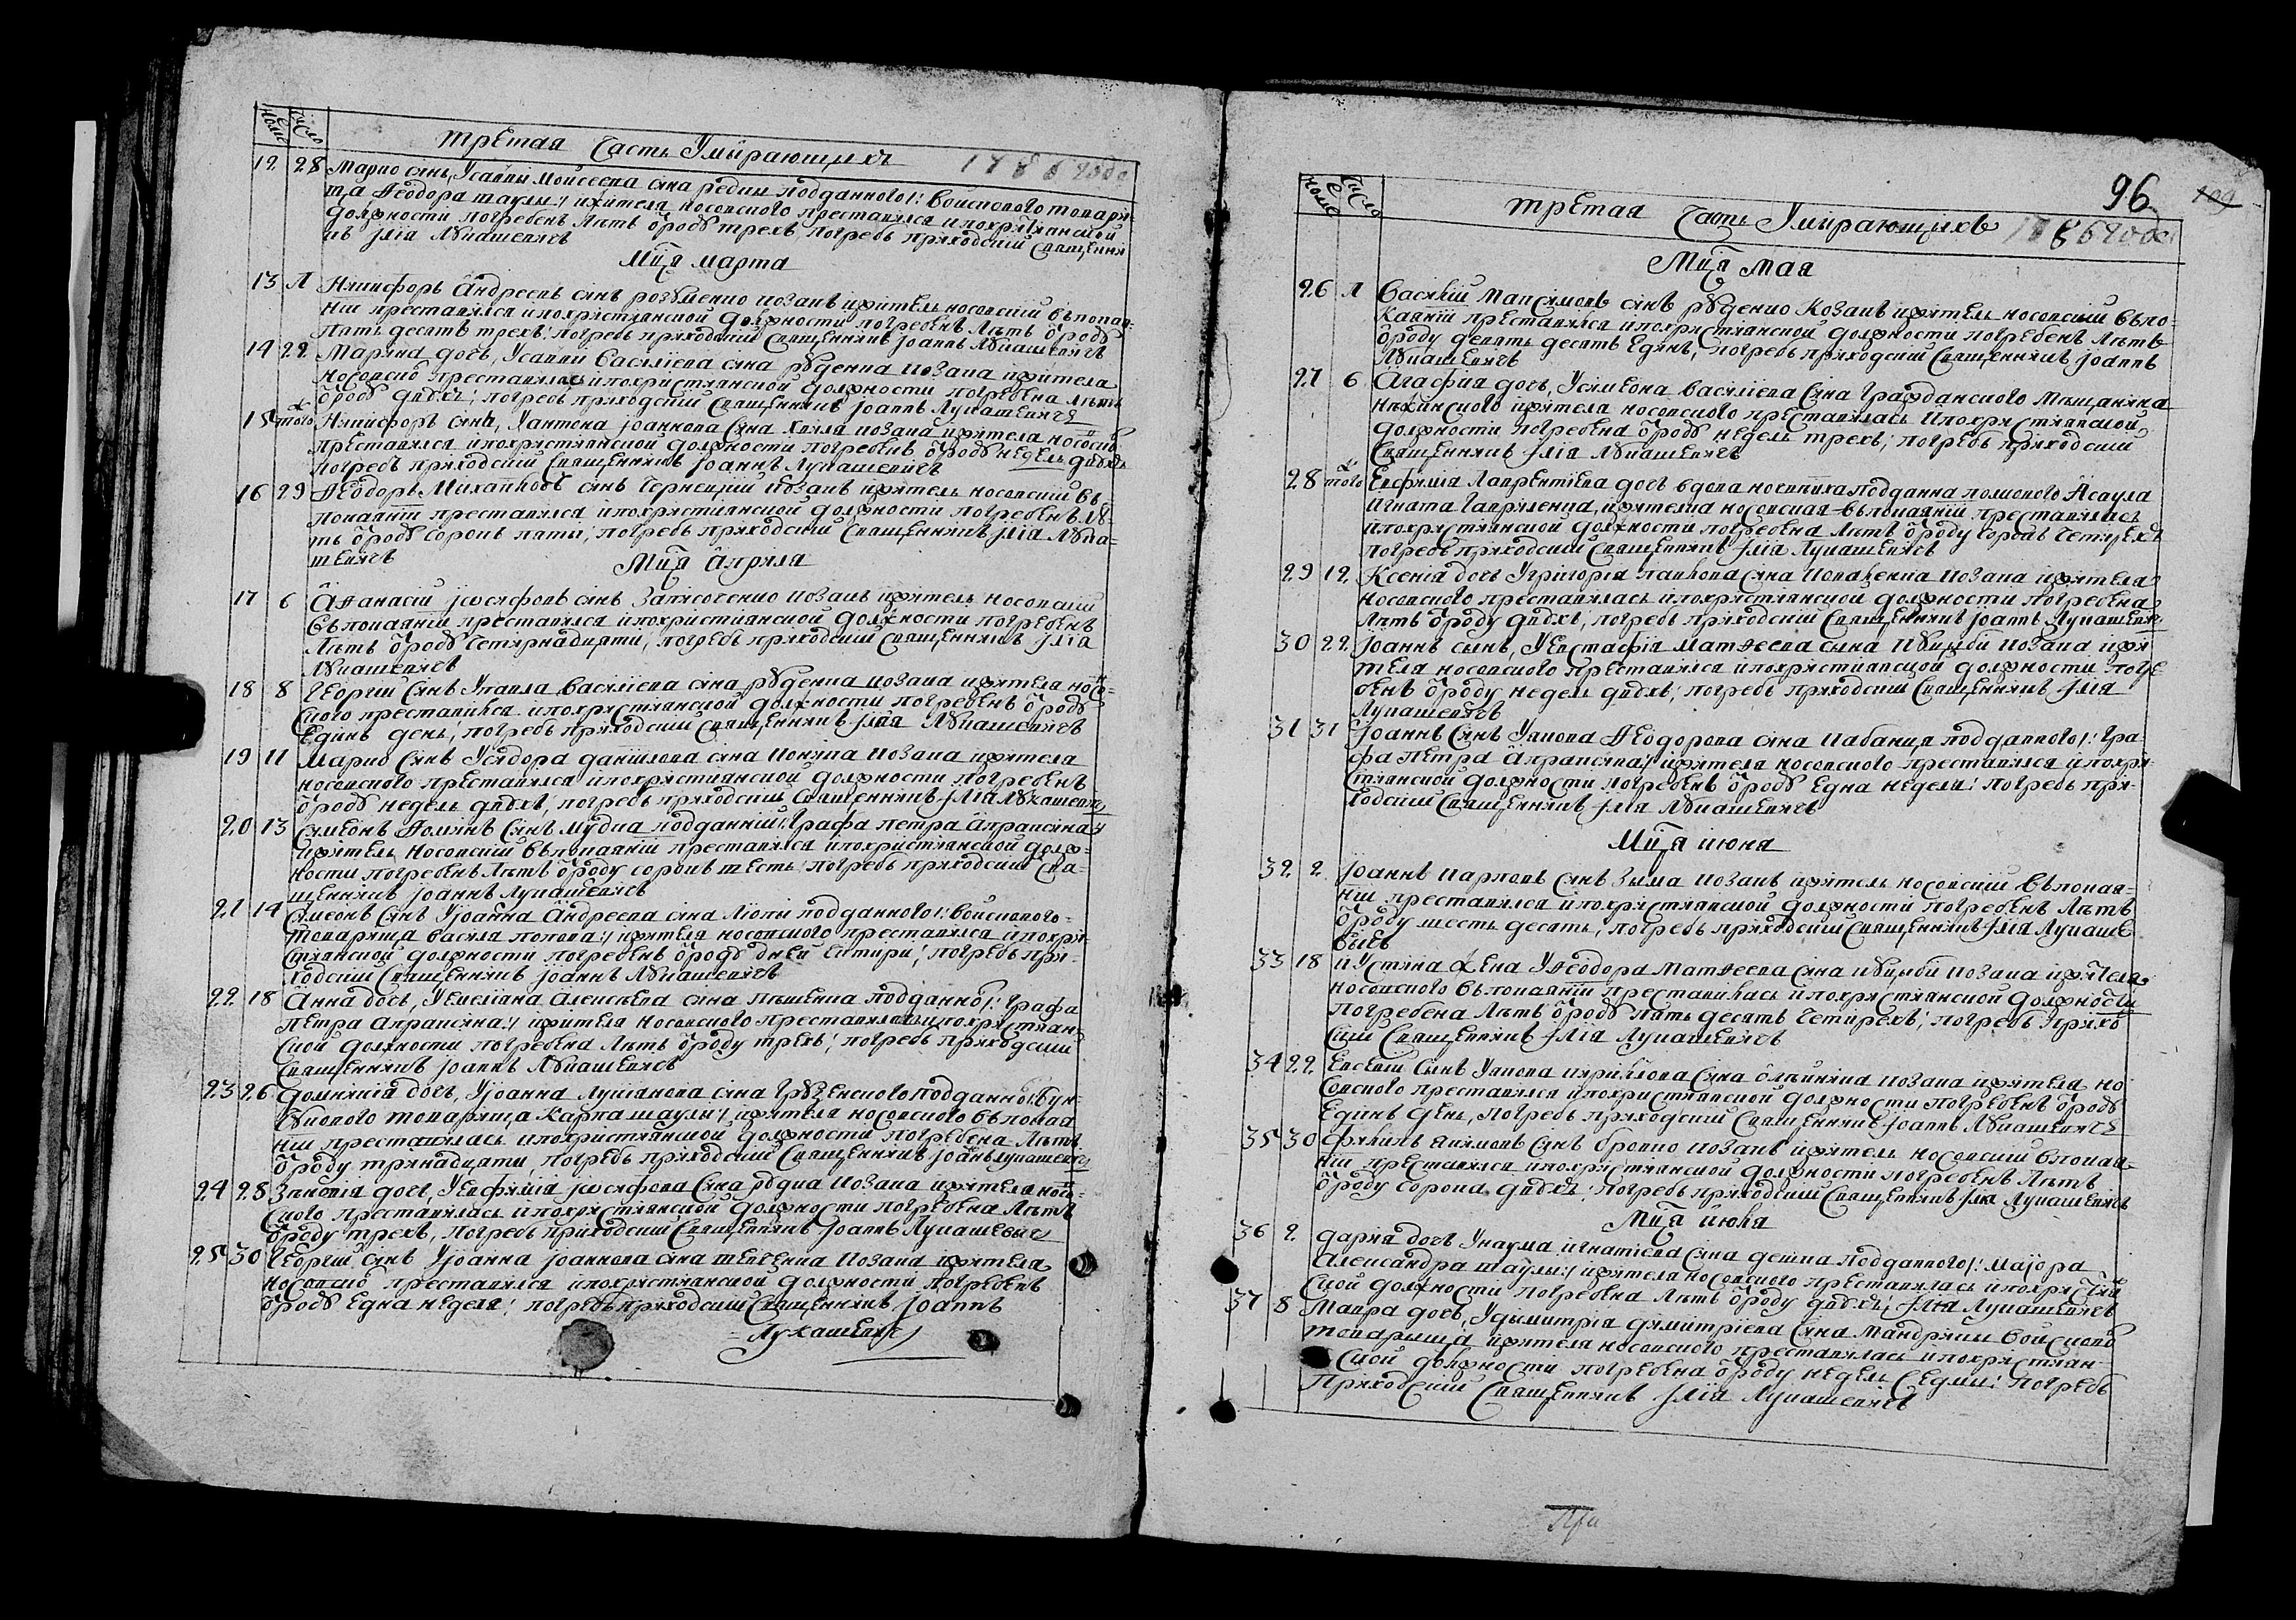 номе
число
третая Часть Умирающихъ 1786 года
12 28 Марко синъ, Усаввы Моисеева сина редки подданного /: войскового товари-
ща Феодора шаулы :/ ижителя носовского преставился ипохристианской
должности погребенъ лѣтъ ѿроду трехъ, погребъ приходский священни
къ Iлiя Лукашевичъ
Мц҃а марта
13 Никифоръ Андреевъ синъ розуменко козакъ ижитель носовский въпокая-
нии преставился ипохристиянской должности погребенъ лѣтъ ѿроду
пять десятъ трехъ, погребъ приходский священникъ Iоаннъ Лукашевичъ
14 22 Марина дочъ, Усаввы Василиева сина руденка козака ижителя
носовско преставилась ипохристиянской должности погребена лѣтъ
ѿроду двохъ, погребъ приходский священникъ Iоаннъ Лукашевичъ
15 того Никифоръ синъ, Уантона Iоаннова сина козака ижителя носовско
преставился ипохристиянской должности погребенъ ѿроду недель двохъ
погребъ приходский священникъ Iоаннъ Лукашевичъ
16 29 Феодоръ Михаиловъ синъ чернецкий козакъ ижитель носовский въ-
покаянии преставился ипохристиянской должности погребенъ лѣ-
тъ ѿроду сорокъ пяти, погребъ приходский священникъ Iлiя Лука-
шевичъ
Мц҃а Априля
17 6 Афанасий Iосифовъ синъ козакъ ижитель носовский
въпокаянии преставился ипохристиянской должности погребенъ
лѣтъ ѿроду четирнадцяти, погребъ приходский священникъ Iлiя
Лукашевичъ
18 8 Георгий синъ Упавла Василиева сина руденка козака ижителя носов-
ского преставился ипохристиянской должности погребенъ ѿроду
единъ день, погребъ приходский священникъ Iлiя Лукашевичъ
19 11 Марко синъ Усидора даниилова сина козака ижителя
носовского преставился ипохристиянской должности погребенъ
ѿроду недель двохъ, погребъ приходский священникъ Iлiя Лукашевичъ
20 13 Симеонъ Фоминъ синъ мудка подданний /: Графа петра Апраксина :/
ижитель носовский въпокаянии преставился ипохристиянской долж-
ности погребенъ лѣтъ ѿроду сорокъ шесть, погребъ приходский свя-
щенникъ Iоаннъ Лукашевичъ
21 14 Симеонъ синъ Уiоанна Андреева сина подданного /: войскового
товарища василя попова :/ ижителя носовского преставился ипохри-
стиянской должности погребенъ ѿроду дней читири, погребъ при-
ходский священникъ Iоаннъ Лукашевичъ
22 18 Анна дочъ, Алексѣева сина подданно /: Графа
петра апраксина :/ ижителя носовского преставилась ипохристиян-
ской должности погребена лѣтъ ѿроду трехъ, погребъ приходский
священникъ Iоаннъ Лукашевичъ
23 26 Домникия дочъ, Уiоанна Лукианова сина подданно /: бун-
чукового товарища карпа шаулы :/ ижителя носовского въпокая
нии преставилась ипохристиянской должности погребена лѣтъ
ѿроду тринадцяти, погребъ приходский священникъ Iоаннъ Лукашевичъ
24 28 дочъ, Iосифова сина козака ижителя носов-
ского преставилась ипохристиянской должности погребена лѣтъ
ѿроду трехъ, погребъ приходский священникъ Iоаннъ Лукашевичъ
25 30 Георгий синъ, Уiоанна Iоаннова сина шевченка козака ижителя
носовско преставился ипохристиянской должности погребенъ
ѿроду една неделя, погребъ приходский священникъ Iоаннъ
Лукашевичъ
96 109
номе
число
третая Часть Умирающихъ 1786 года
Мц҃а Мая
26 Василий Максимовъ синъ руденко козакъ ижитель носовский въпо-
каянии преставился ипохристиянской должности погребенъ лѣтъ
ѿроду девять десятъ единъ, погребъ приходский священникъ Iоаннъ
Лукашевичъ
27 6 Агафия дочъ, Усимеона василиева сина гражданского мѣщанина
нѣжинского ижителя носовского преставилась ипохристиянской
должности погребена ѿроду недель трехъ, погребъ приходский
священникъ Iлiя Лукашевичъ
28 того Евфимия Лаврентиева дочъ вдова подданна полкового Асаула
игната гавриленка, ижителка носовская въпокаянии преставилась
ипохристиянской должности погребена лѣтъ ѿроду сорокъ четирехъ
погребъ приходский священникъ Iлiя Лукашевичъ
29 12 Ксения дочъ Угригория павлова сина коваленка козака ижителя
носовского преставилась ипохристиянской должности погребена
лѣтъ ѿроду двохъ, погребъ приходский священникъ Iоаннъ Лукашевичъ
30 22 Iоаннъ сынъ, Уевстафия матфеева сына козака ижи
теля носовского преставился ипохристиянской должности погре
бенъ ѿроду недель двохъ, погребъ приходский священникъ Iлiя
Лукашевичъ
31 31 Iоаннъ синъ Уякова Феодорова сина кабанця подданного /: гра-
фа петра апраксина :/ ижителя носовского преставился ипохри-
стиянской должности погребенъ ѿроду една неделя, погребъ при-
ходский священникъ Iлiя Лукашевичъ
Мц҃а июня
32 2 Iоаннъ карповъ синъ зыма козакъ ижитель носовский въпокая-
нии преставился ипохристиянской должности погребенъ лѣтъ
ѿроду шесть десятъ, погребъ приходский священникъ Iлiя Лукаше
вычъ
33 18 иУстина жена Уфеодора матфеева сина козака ижителя
носовского въпокаянии преставилась ипохристиянской должности
погребена лѣтъ ѿроду пять десятъ четирехъ, погребъ прихо
ский священникъ Iлiя Лукашевичъ
34 22 Евсевий синъ Уякова кирилова сина олѣйника козака ижителя но
совского преставился ипохристиянской должности погребенъ ѿроду
единъ день, погребъ приходский священникъ Iоаннъ Лукашевичъ
35 30 якимовъ синъ бровко козакъ ижитель носовский впокая-
нии преставился ипохристиянской должности погребенъ лѣтъ
ѿроду сорока двохъ, погребъ приходский священникъ Iлiя Лукашевичъ
Мц҃а июля
36 2 Дария дочъ Унаума игнатиева сина подданного /: маiора
Александра шаулы :/ ижителя носовского преставилась ипохристия
ской должности погребена лѣтъ ѿроду двохъ, Iлiя Лукашевичъ
37 8 Мавра дочъ, Удымитрия димитриева сина мандрики войсково
товарища ижителя носовского преставилась ипохристиян-
ской должности погребена ѿроду недель седми, погребъ
приходский священникъ Iлiя Лукашевичъ